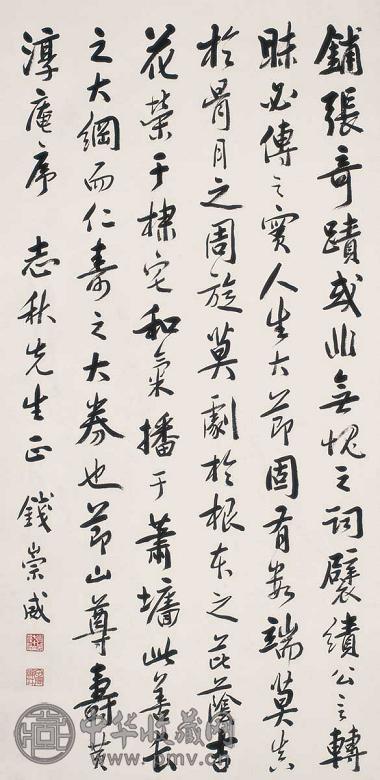 鋪張奇蹟或非無愧之詞襞績公言轉
昧必傳之實人生大節固有數端莫真
於骨月之周旋莫劇於根本之芘蔭吉
花榮于棣宅和氣播于蕭墻此善長
之大綱而仁壽之大券也節山尊壽黃
淳庵序 志秋先生正 錢崇威
中华收藏网
www.pmv.cn